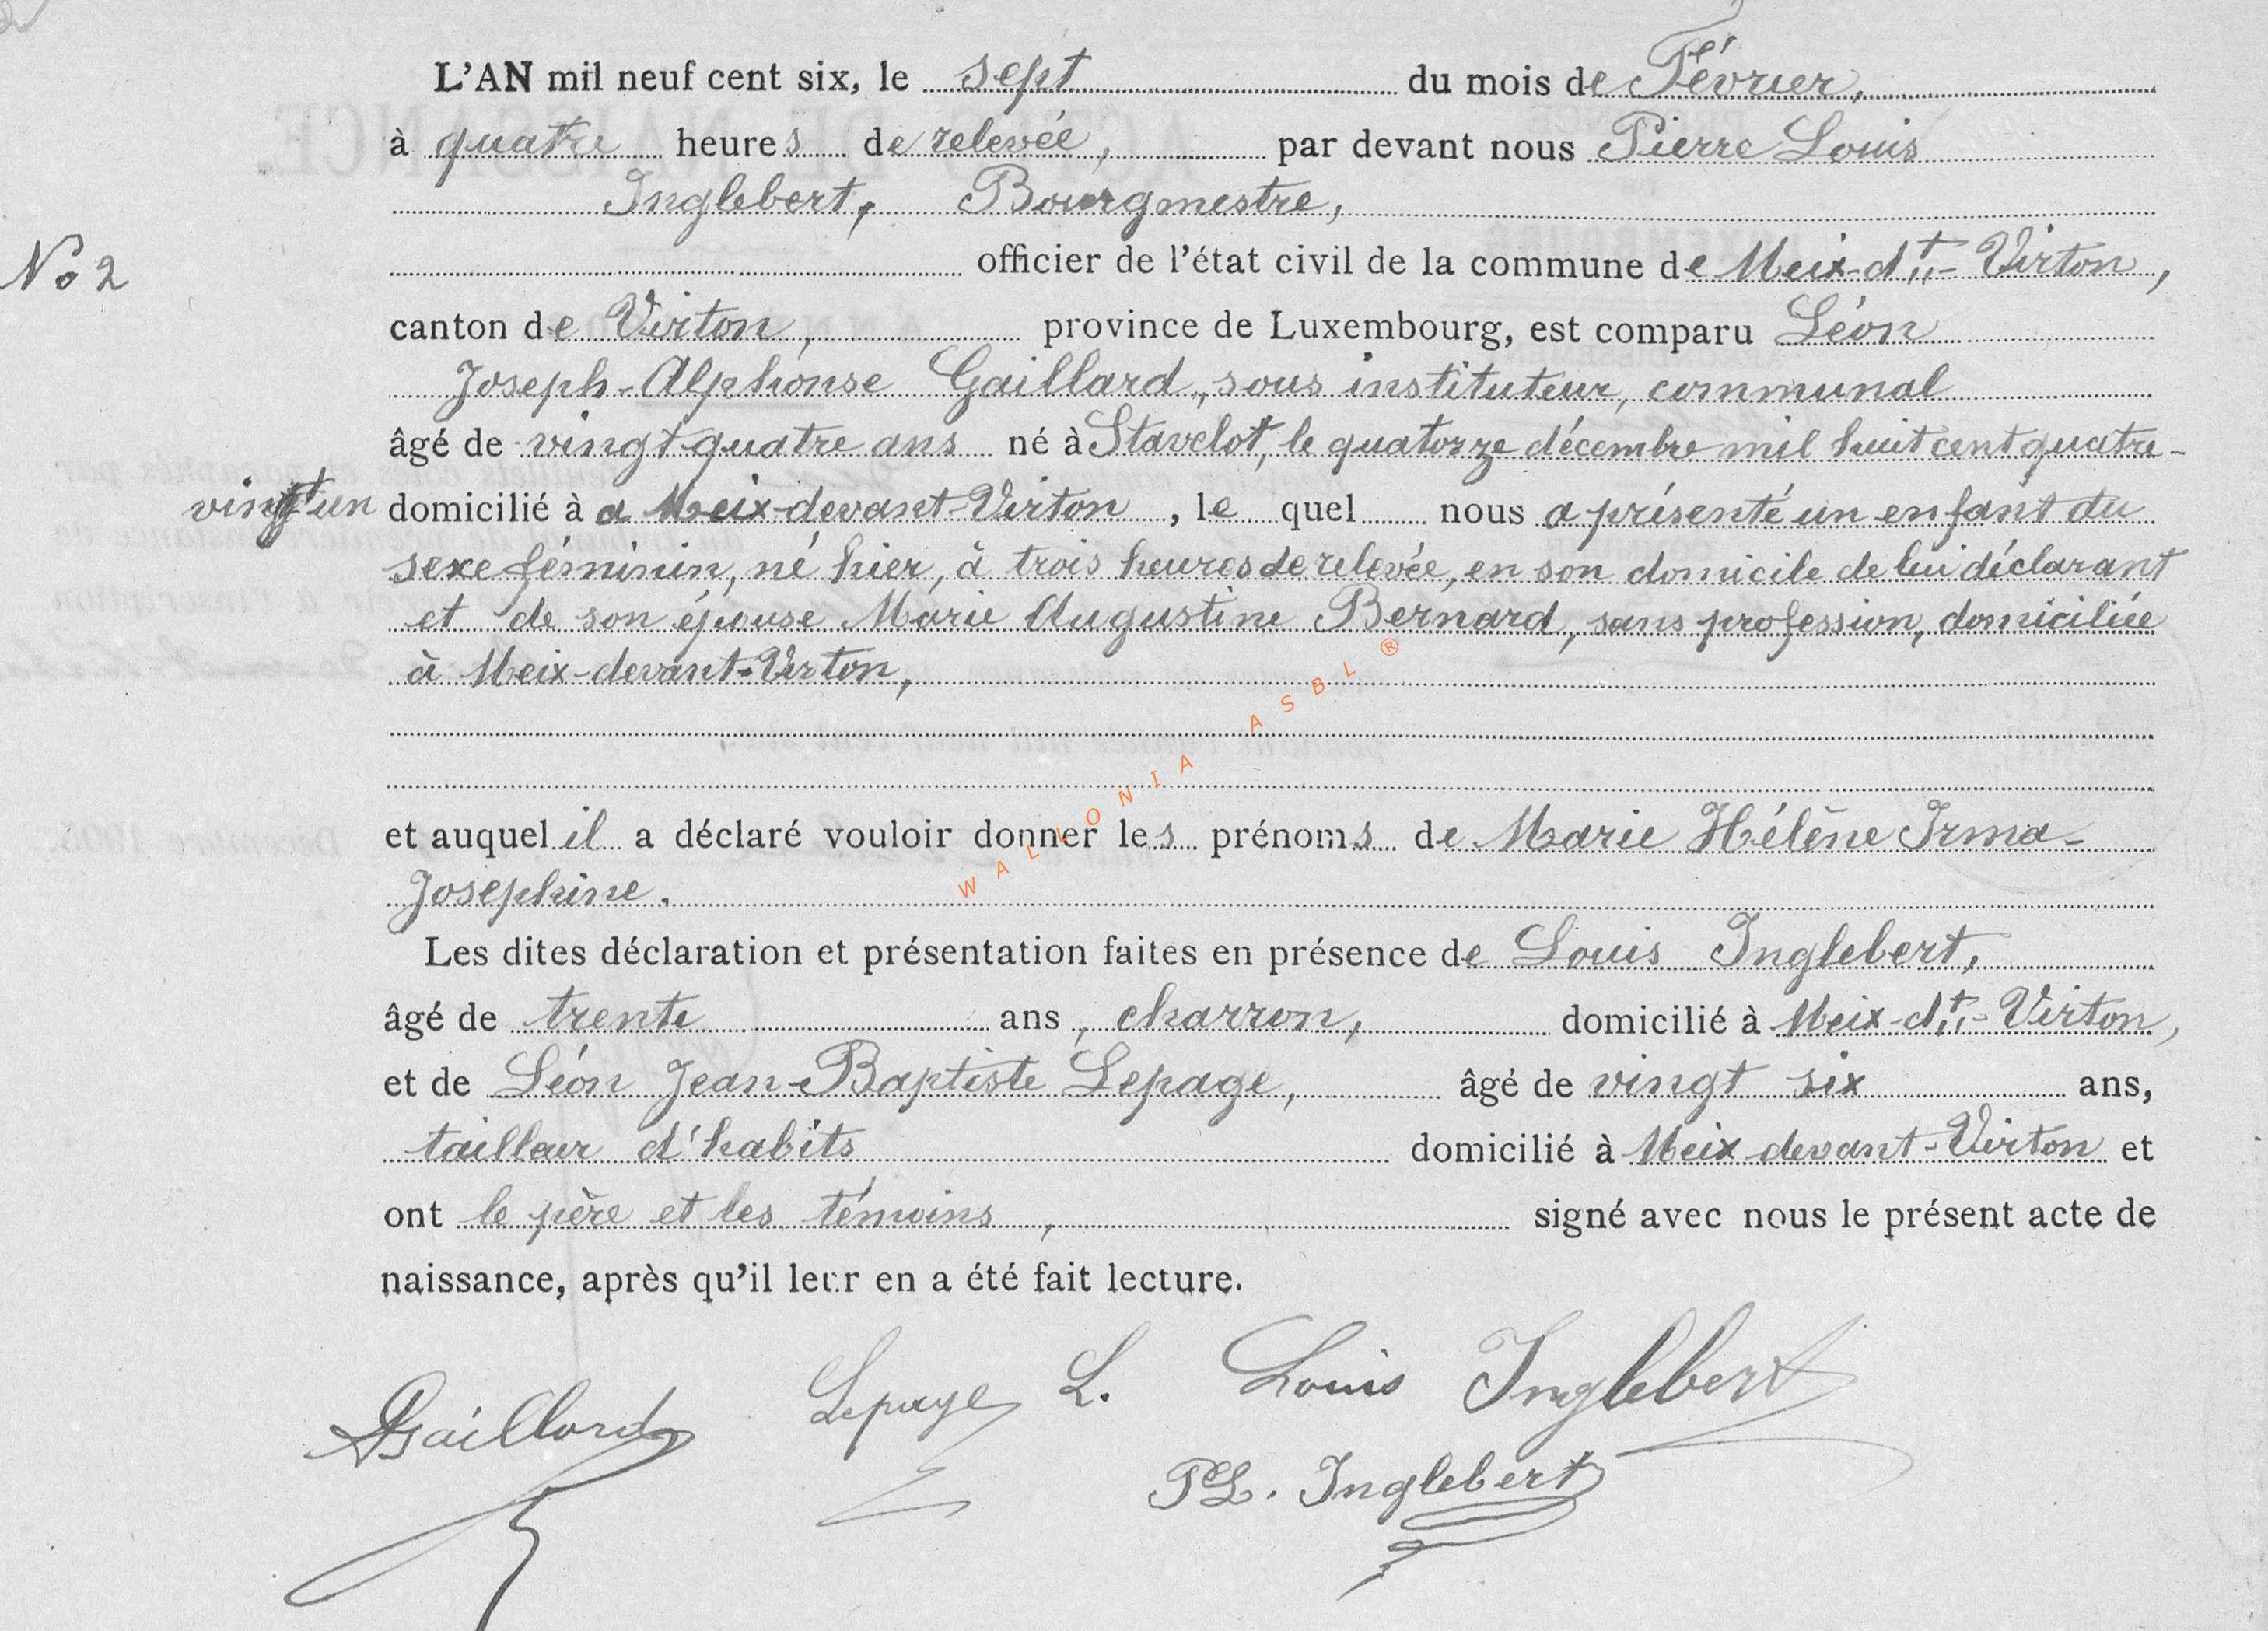 L'AN mil neuf cent six, le sept du mois de Février,
à quatre heures de relevée, par devant nous Pierre Louis
Inglebert, Bourgmestre,
No 2
officier de l'état civil de la commune de Meix-dt-Virton,
canton de Virton, province de Luxembourg, est comparu Léon
Joseph-Alphonse Gaillard, sous instituteur, communal
âgé de vingt-quatre ans né à Stavelot, le quatorze décembre mil huit cent quatre-
vingt un domicilié à a Meix-devant-Virton, le quel nous a présenté un enfant du
sexe féminin, né hier, à trois heures de relevée, en son domicile de lui déclarant
et de son épouse Marie Augustine Bernard, sans profession, domiciliée
à Meix-devant-Virton,
WALLONIA ASBL ®
et auquel il a déclaré vouloir donner les prénoms de Marie Hélène Irma-
Josephine.
Les dites déclaration et présentation faites en présence de Louis Inglebert,
âgé de trente ans, charron, domicilié à Meix-dt-Virton,
et de Léon Jean-Baptiste Lepage, âgé de vingt six ans,
tailleur d'habits domicilié à Meix-devant-Virton et
ont le père et les témoins, signé avec nous le présent acte de
naissance, après qu'il leur en a été fait lecture.
Gaillard Lepage L. Louis Inglebert
PL. Inglebert